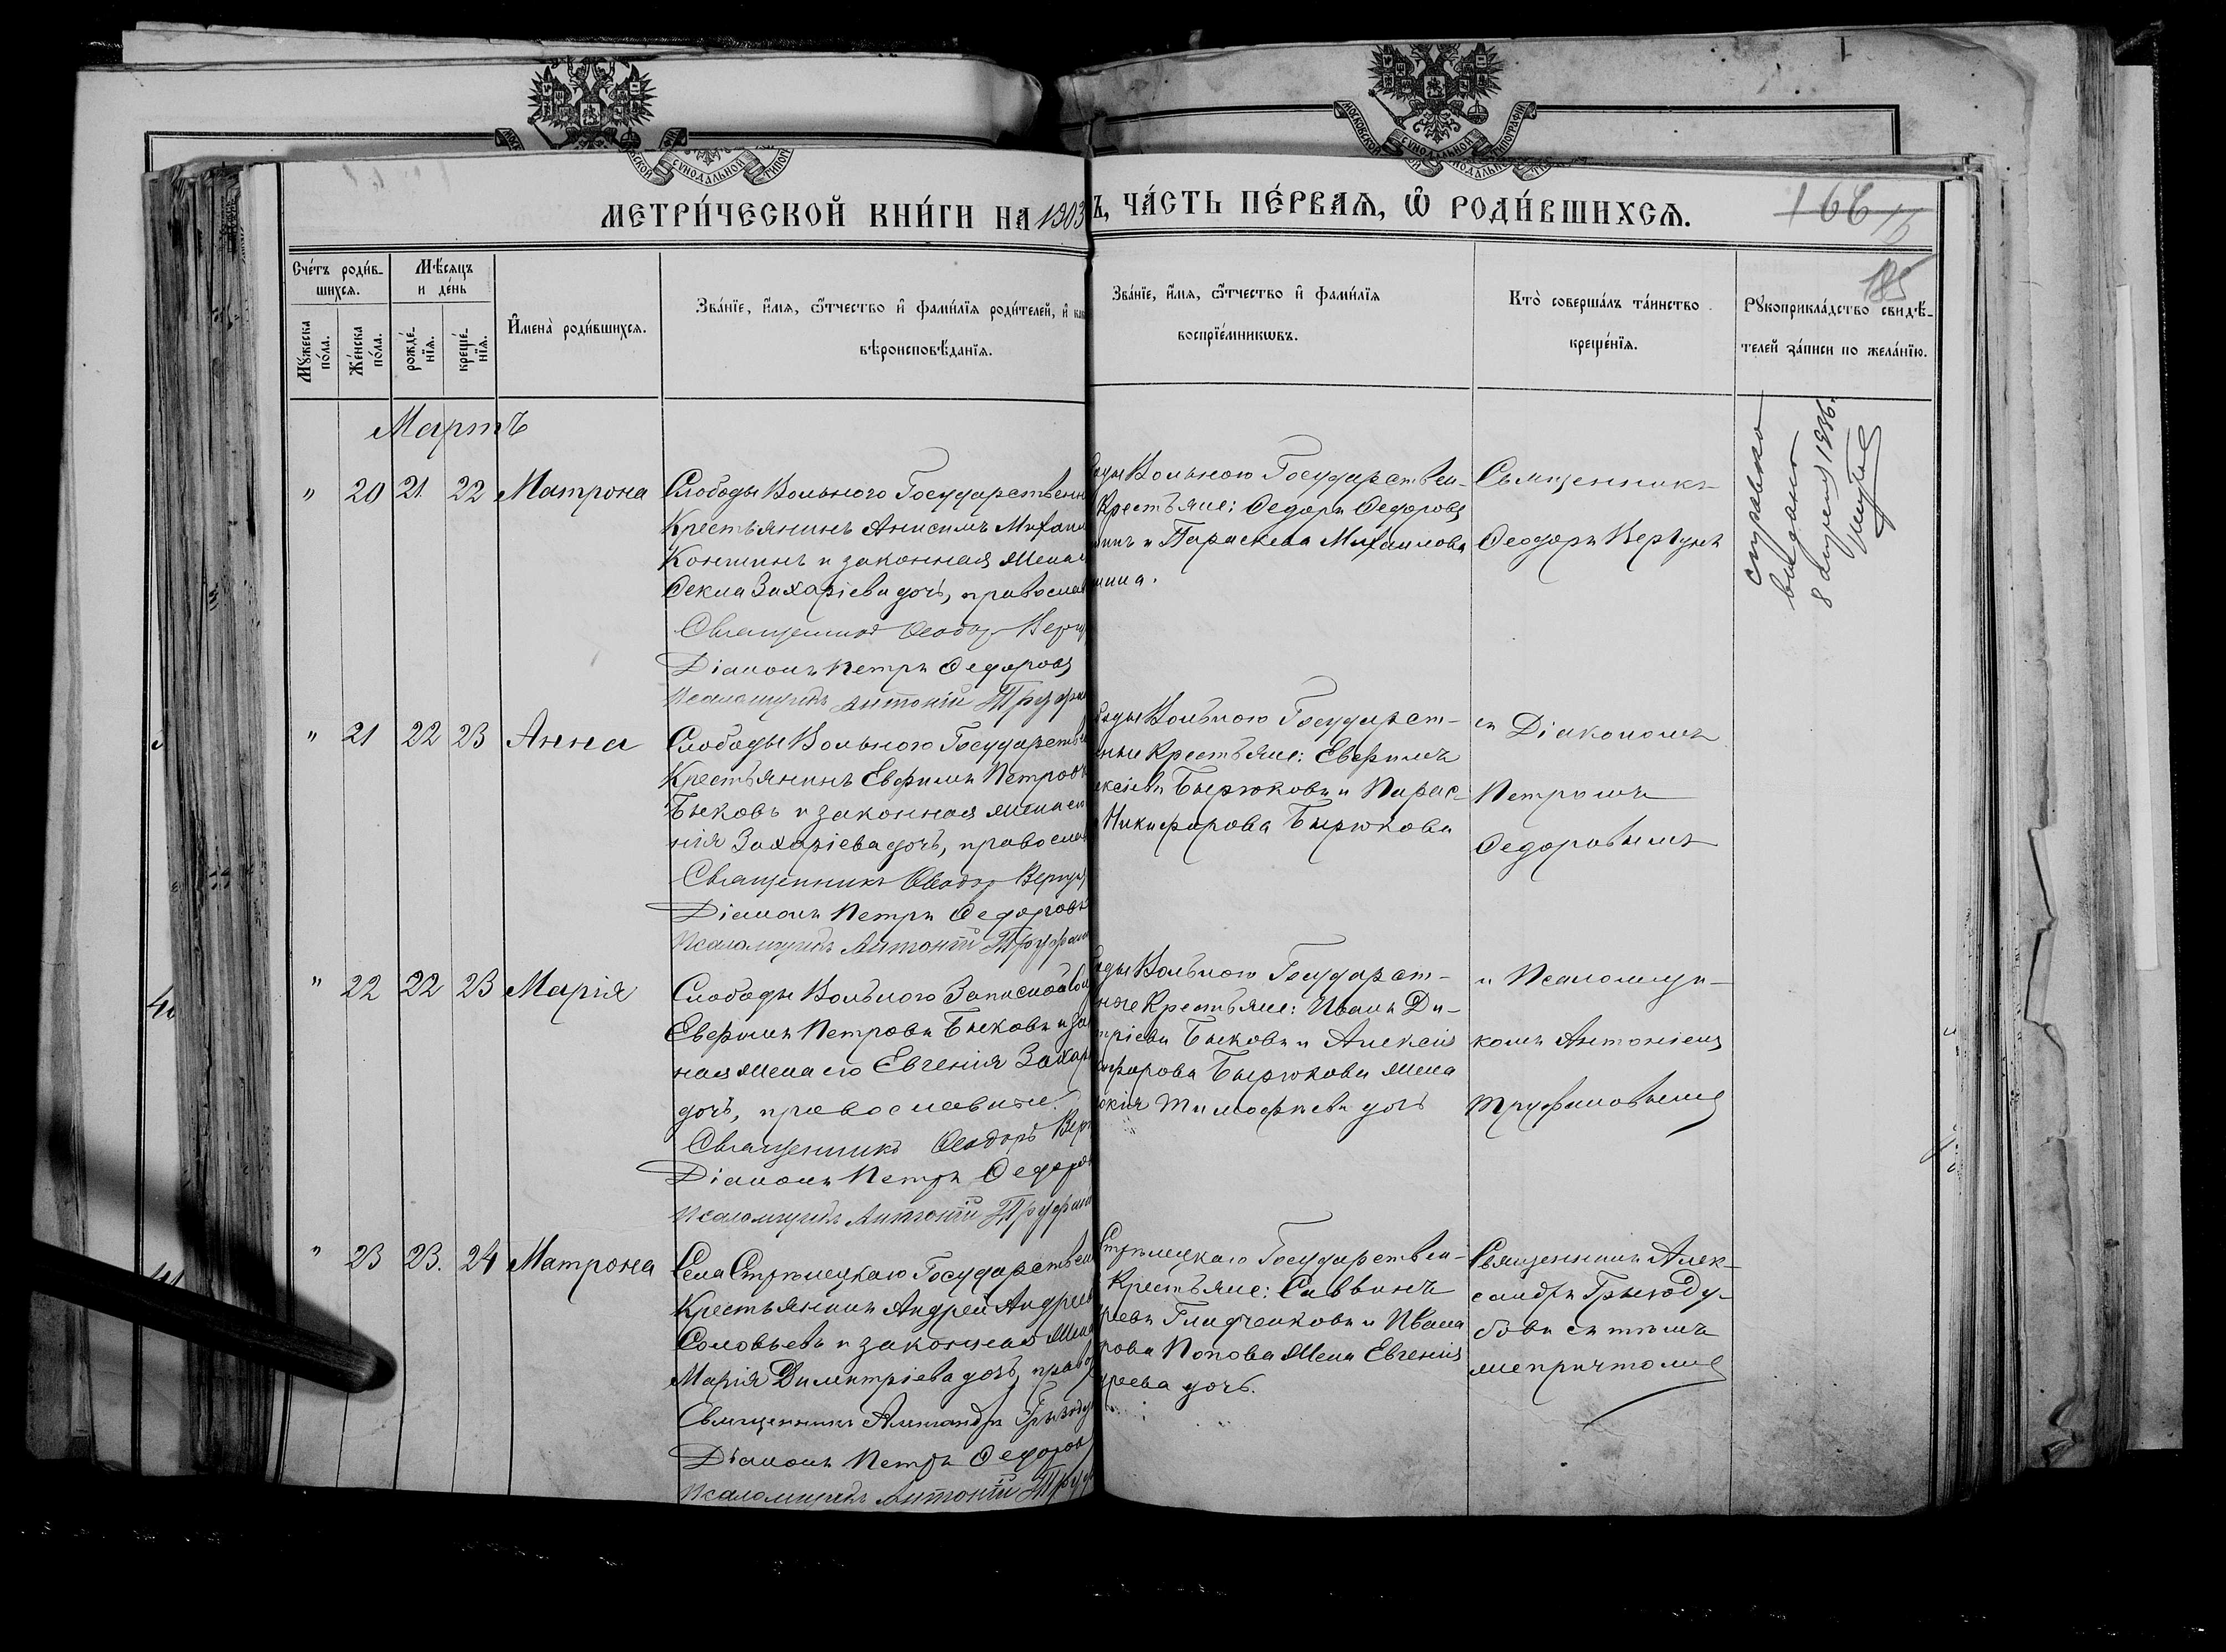 МЕТРИ́ЧЕСКОЙ КНИ́ГИ НА 1903
Ъ, ЧА́СТЬ ПЕ́РВАѦ, Ѿ РОДИ́ВШИХСѦ.
185
Сче́тъ роди́в-
шихсѧ.
Мꙋ́жеска
по́ла.
Же́нска
по́ла.
Мѣ́сѧцъ
и де́нь
рожде́-
нїѧ.
креще́-
нїѧ.
И҆мена̀ роди́вшихсѧ.
Зва́нїе, и҆́мѧ, ѻ҆́тчество и҆ фами́лїѧ роди́телей, и҆
вѣроисповѣ́данїѧ.
Зва́нїе, и҆́мѧ, ѻ҆́тчество и҆ фами́лїѧ
воспрїе́мникѡвъ.
Кто̀ соверша́лъ та́инство
креще́нїѧ.
Рꙋкоприкла́дство свидѣ́-
телей за́писи по жела́нїю.
Мартъ
" 20 21 22 Матрона
Слободы Вольного Государственн
Крестьянинъ Анисимъ Михаил
Коншинъ и законная жена
Ѳекла Захаріева дочь, православ
Священникъ Ѳеодор Верг
Діаконъ Петръ Ѳедоровъ
Псаломщикъ Антоній Труфан
оды Вольного Государствен-
Крестьяне: Ѳедоръ Ѳедоровъ
шинъ и Параскева Михаилова
шина.
Священникъ
Ѳеодоръ Вергунъ
справка
выдана
8 1936.
" 21 22 23 Анна
Слободы Вольного Государств
Крестьянинъ Евфимъ Петровъ
Быковъ и законная жена ег
нія Захаріева дочь, православ
Священникъ Ѳеодор Вергун
Діаконъ Петръ Ѳедоровъ
Псаломщикъ Антоній Труфан
боды Вольного Государст-
нные Крестьяне: Евфимъ
ексіевъ Бырюковъ и Парас-
Никифорова Бырюкова
съ Діакономъ
Петромъ
Ѳедоровымъ
" 22 22 23 Марія
Слободы Вольного Запасной
Евфимъ Петровъ Быковъ и за
ная жена его Евгенія Захар
дочь, православные.
Священникъ Ѳеодоръ Верг
Діаконъ Петръ Ѳедоров
Псаломщикъ Антоній Труфан
оды Вольного Государст-
ные Крестьяне: Иванъ Ди-
тріевъ Быковъ и Алексія
ифорова Бырюкова жена
окія Тимофѣева дочь
и Псаломщи-
комъ Антоніемъ
Труфановымъ
" 23 23. 24 Матрона
Села Стрѣлецкаго Государствен
Крестьянинъ Андрей Андреев
Соловьевъ и законная жена
Марія Димитріева дочь, право
Священникъ Александръ Грызоду
Діаконъ Петръ Ѳедоров
Псаломщикъ Антоній Труф
Стрѣлецкаго Государствен-
Крестьяне: Саввинъ
реевъ Гладченковъ и Ивана
рова Попова жена Евгенія
дреева дочь.
Священникъ Алек-
сандръ Грызоду-
бовъ съ тѣмъ
же причтомъ